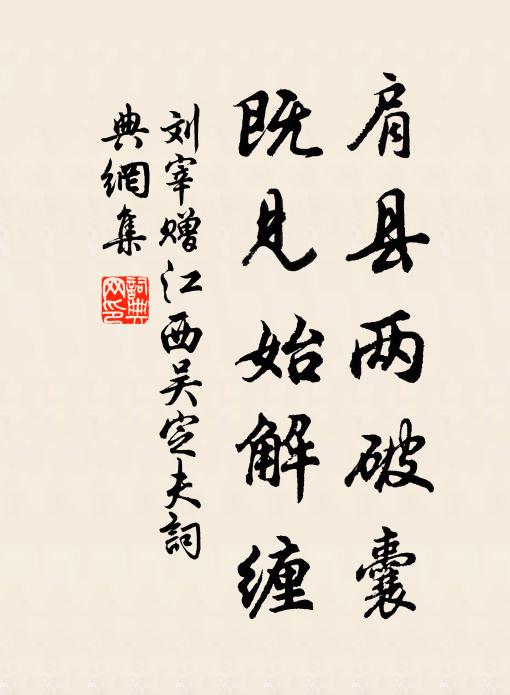 肩县两破囊
既见始解缠
刘宰赠江西吴定夫詞
典網集
詞典网印